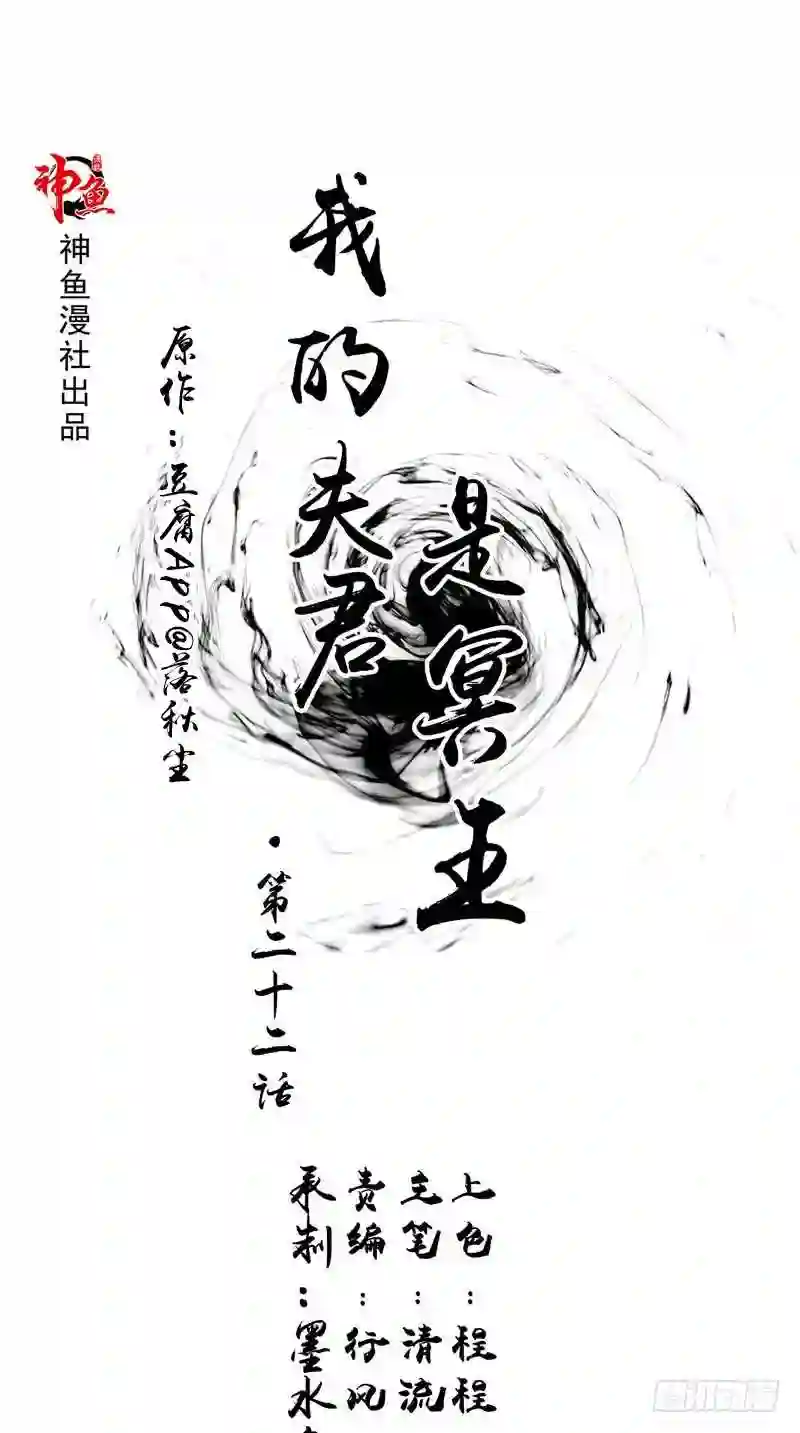 神鱼
神鱼漫社出品
原作：豆腐APP@落秋尘
我的夫君
是冥王
·第二十二话
承制：墨水
责编：行风
主笔：清流
上色：程程